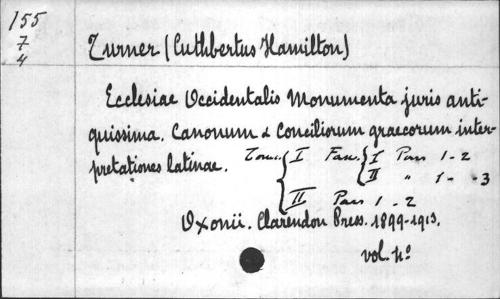 155
7
4
Turner (Cuthbertus Hamilton)
Ecclesiae Occidentalis Monumenta juris anti-
quissima. Canonum & Conciliorum graecorum inter-
pretationes latinae. Tomus I Fasc. I Pars 1-2
II " 1- -3
II Pars 1-2
Oxonii. Clarendon Press. 1899-1913.
vol. 4º